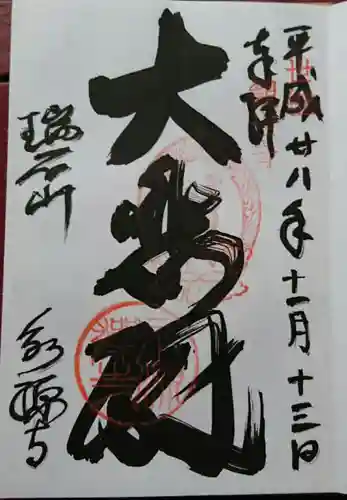 平成廿八年十一月十三日
奉拝
大悲殿
瑞石山
永源寺